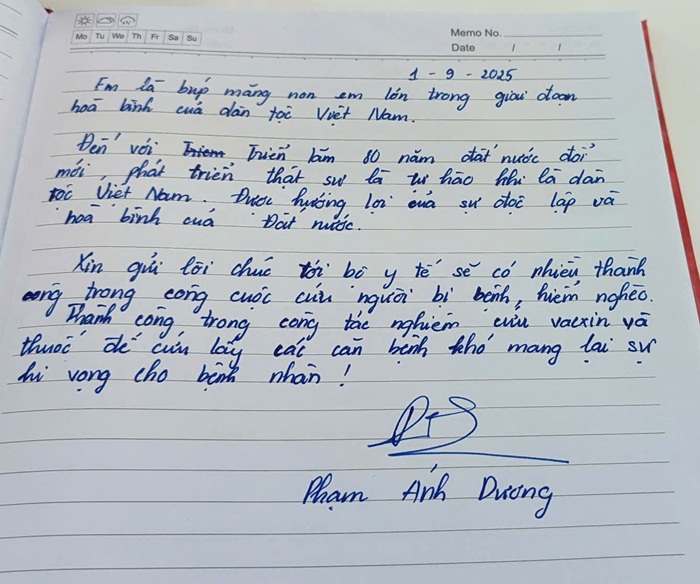 Mo Tu We Th Fr Sa Su
Memo No.
Date / /
1 - 9 - 2025
Em là búp măng non em lớn trong giai đoạn
hoà bình của dân tộc Việt Nam.
Đến với Triển lãm 80 năm đất nước đổi
mới, phát triển thật sự là tự hào khi là dân
tộc Việt Nam. Được hưởng lợi của sự độc lập và
hoà bình của Đất nước.
Xin gửi lời chúc tới bộ y tế sẽ có nhiều thành
công trong công cuộc cứu người bị bệnh, hiểm nghèo.
Thành công trong công tác nghiêm cứu vacxin và
thuốc để cứu lấy các căn bệnh khó mang lại sự
hi vọng cho bệnh nhân !
Phạm Ánh Dương